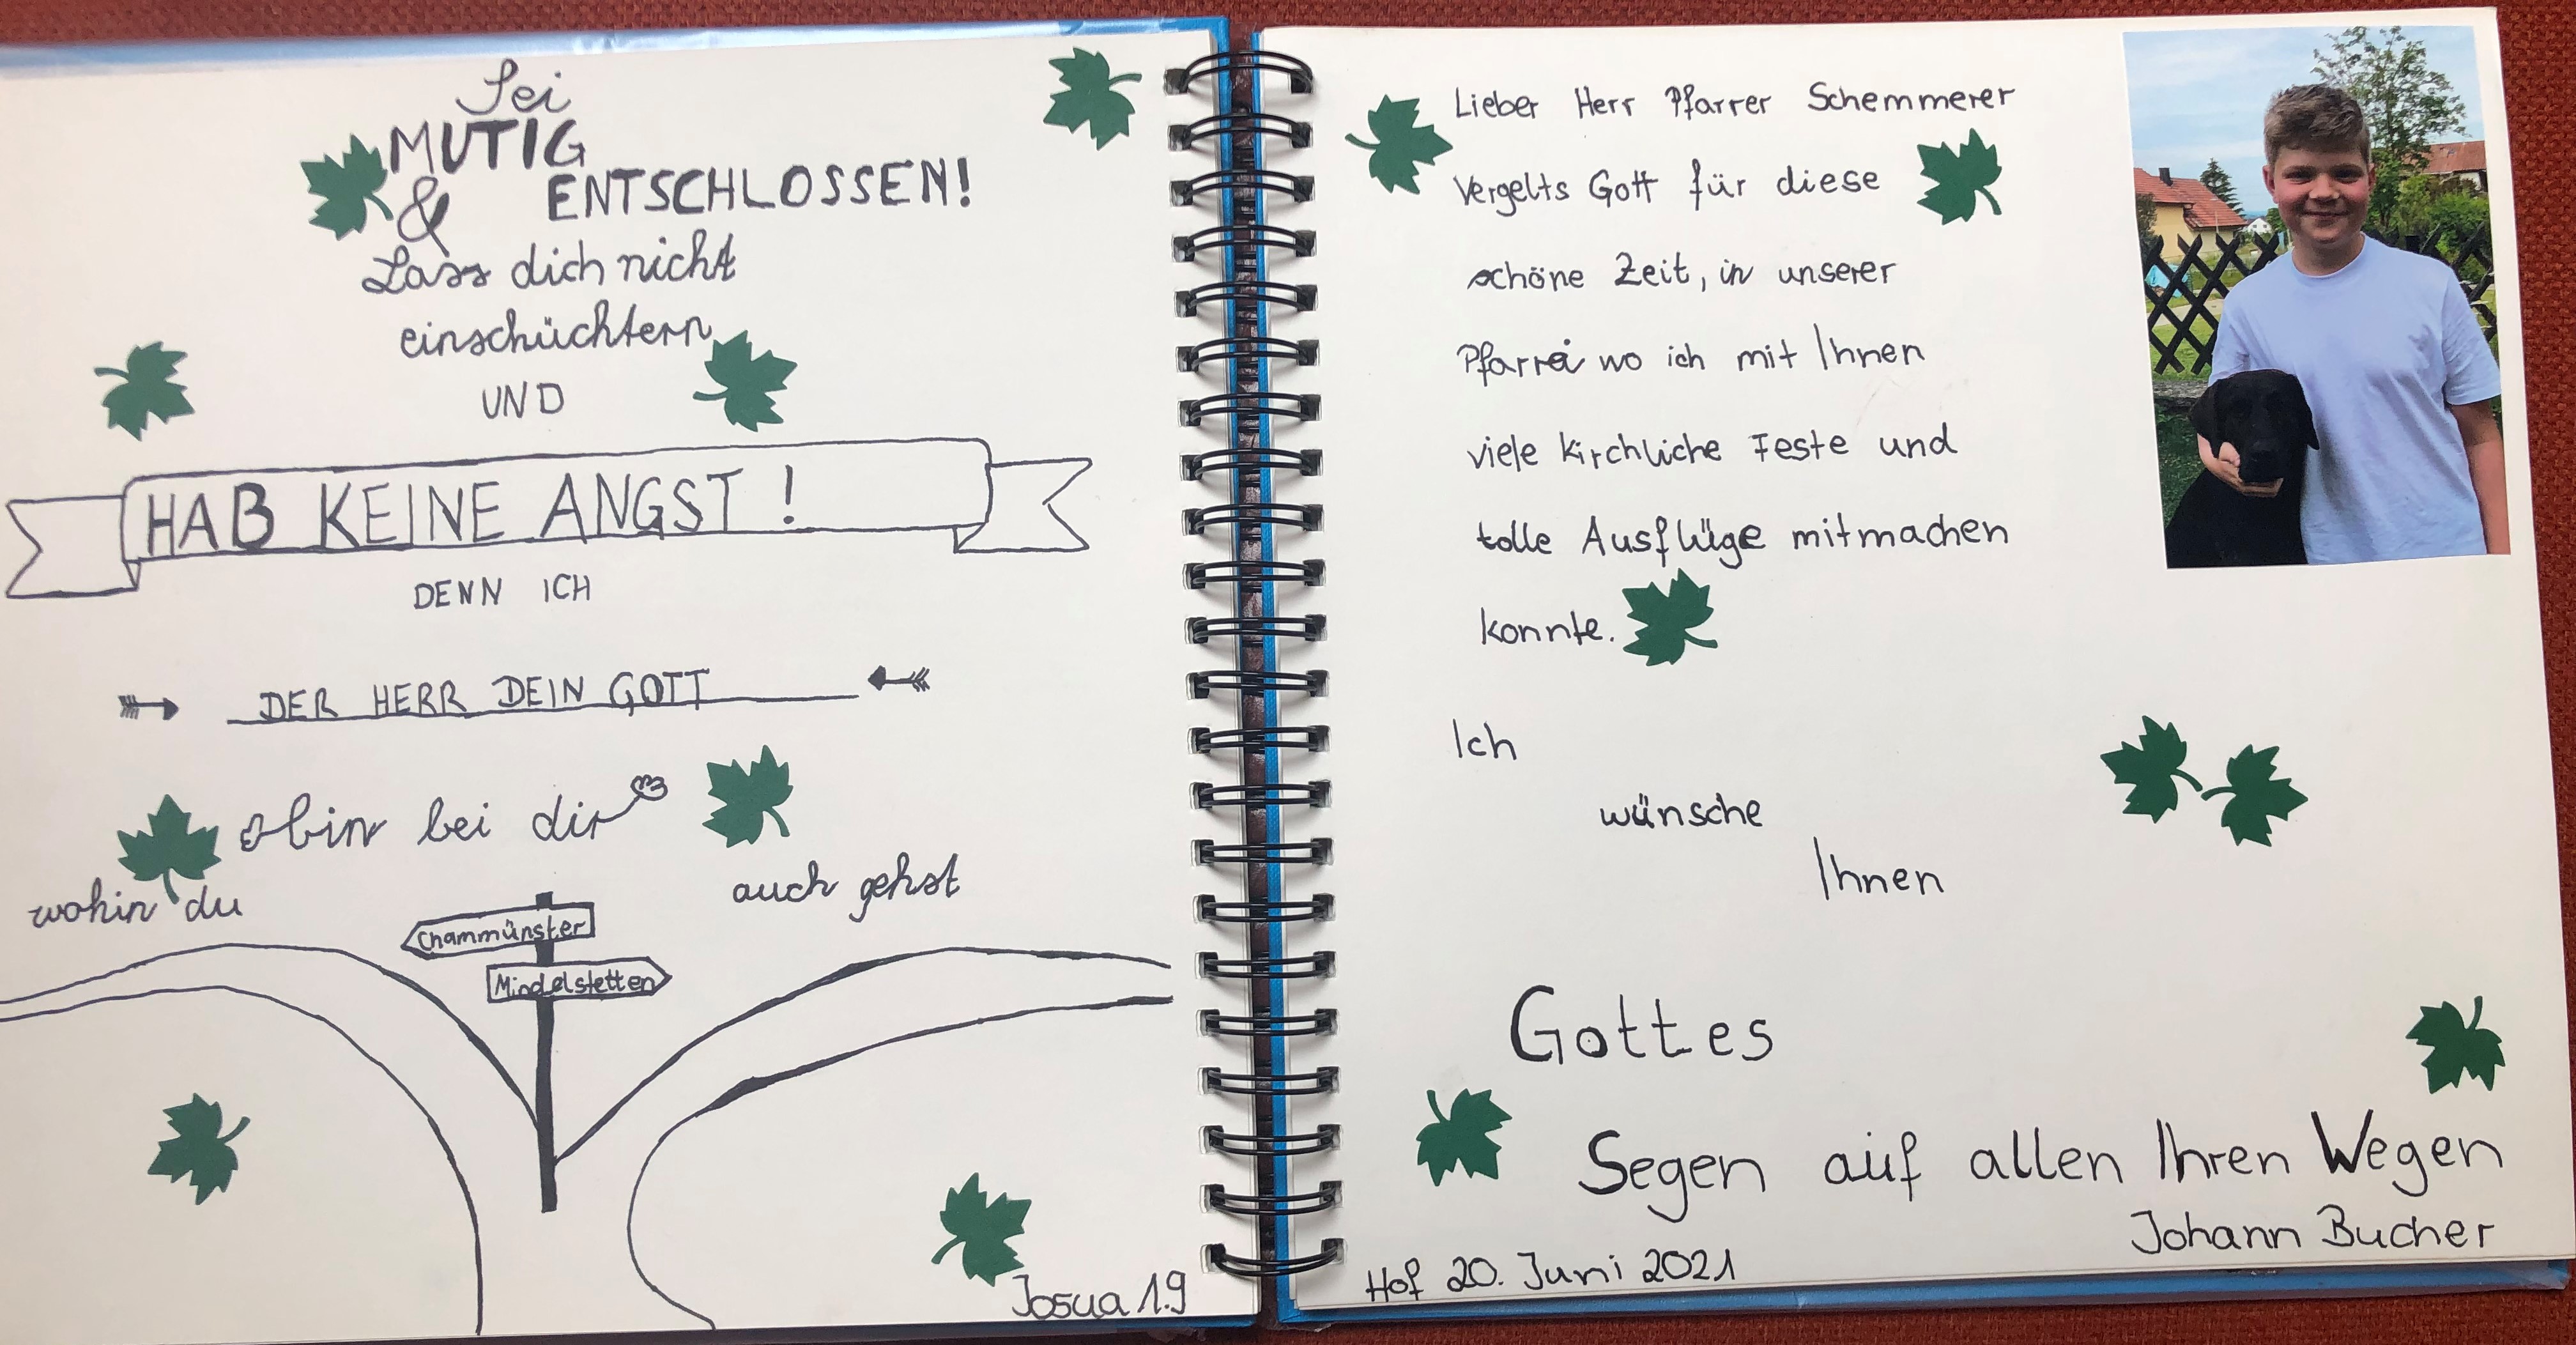 Sei
MUTIG
& ENTSCHLOSSEN!
Lass dich nicht
einschüchtern
UND
HAB KEINE ANGST!
DENN ICH
DER HERR DEIN GOTT
bin bei dir
wohin du auch gehst
Chammünster
Mindelstetten
Josua 1.9
Lieber Herr Pfarrer Schemmerer
Vergelts Gott für diese
schöne Zeit, in unserer
Pfarrei wo ich mit Ihnen
viele kirchliche Feste und
tolle Ausflüge mitmachen
konnte.
Ich
wünsche
Ihnen
Gottes
Segen auf allen Ihren Wegen
Johann Bucher
Hof 20. Juni 2021